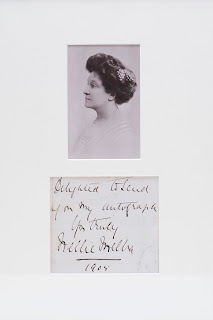 Delighted to send
you my autograph
Yrs truly
Nellie Melba
1905